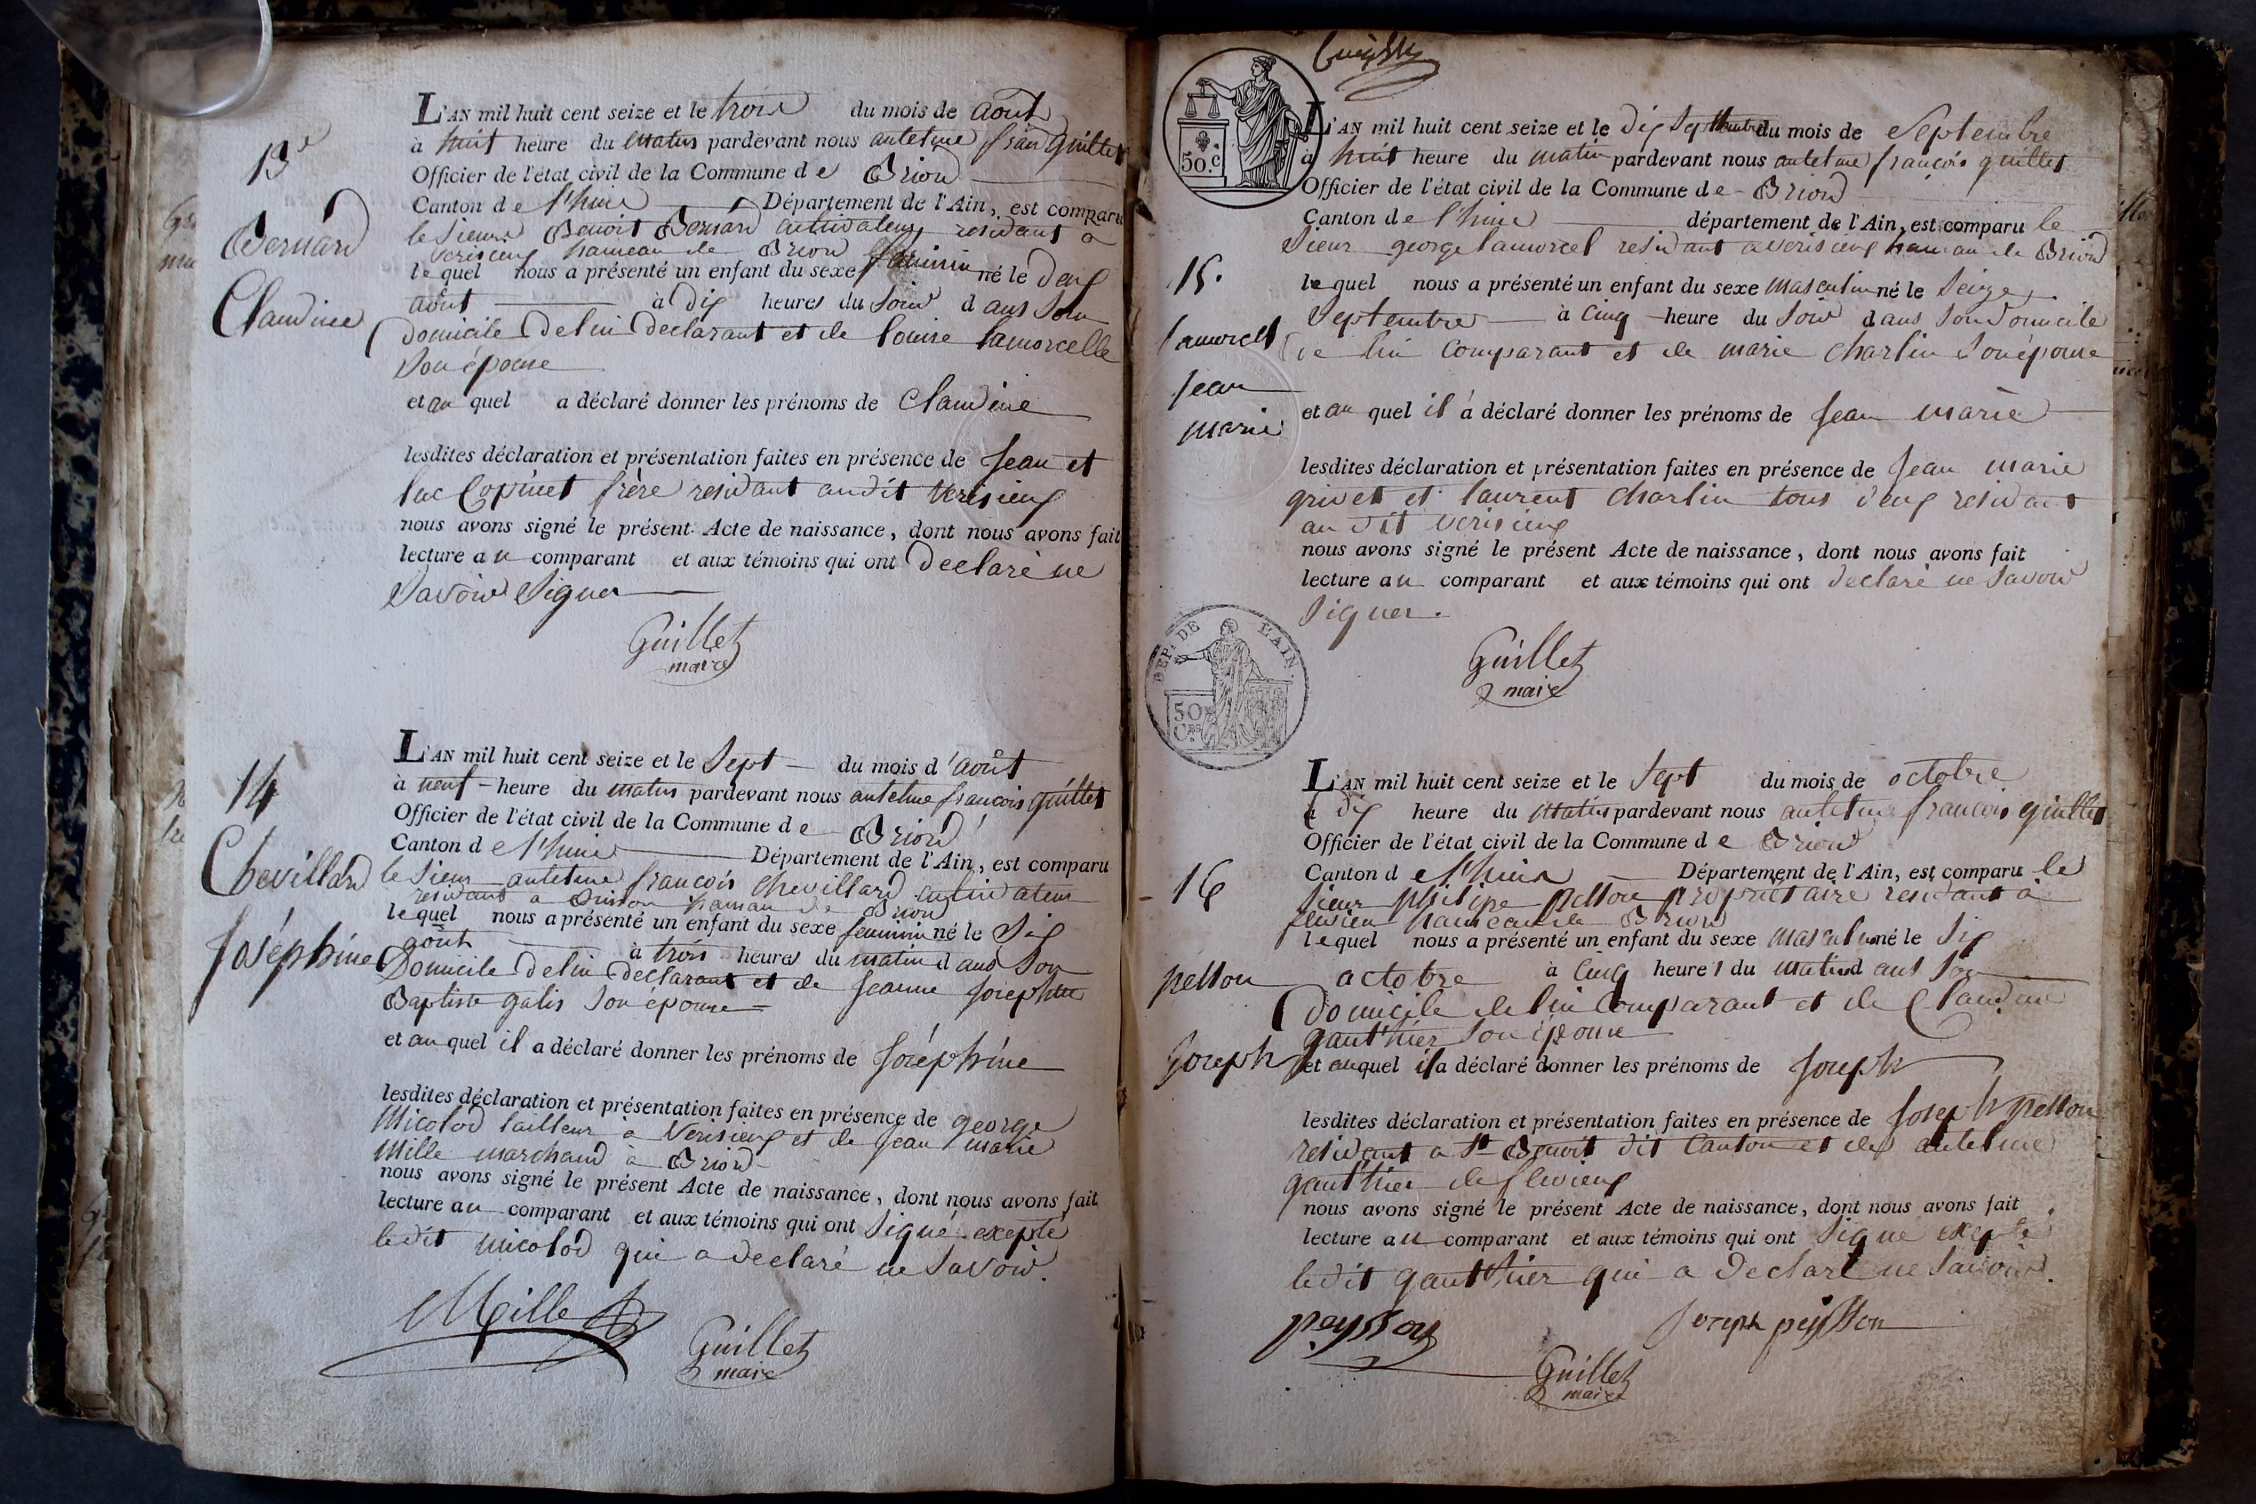 13e
Bernard
Claudine
L'AN mil huit cent seize et le trois du mois de août
à huit heure du matin pardevant nous antelme fran guillet
Officier de l'état civil de la Commune de Briord
Canton de l'huis Département de l'Ain, est comparu
le Sieur Benoit Bernard cultivateur residant a
Verisieux hameau de Briord
lequel nous a présenté un enfant du sexe feminin né le deux
août à dix heures du Soir dans Son
domicile de lui declarant et de louise lamorcelle
Son épouse
et au quel a déclaré donner les prénoms de Claudine
lesdites déclaration et présentation faites en présence de Jean et
luc Copinet frère residant audit Verisieux
nous avons signé le présent Acte de naissance, dont nous avons fait
lecture au comparant et aux témoins qui ont declaré ne
Savoir Signer
Guillet
maire
14
Chevillard
Joséphine
L'AN mil huit cent seize et le Sept du mois d'août
à neuf heure du matin pardevant nous antelme françois guillet
Officier de l'état civil de la Commune de Briord
Canton de l'huis Département de l'Ain, est comparu
le Sieur antelme françois Chevillard cultivateur
residant a hameau de Briord
lequel nous a présenté un enfant du sexe feminin né le Six
août à trois heures du matin dans Son
Domicile de lui declarant et de Jeanne Josephte
Baptiste galis Son épouse
et au quel il a déclaré donner les prénoms de Joséphine
lesdites déclaration et présentation faites en présence de george
Micolod tailleur à Verisieux et de Jean marie
Mille marchand à Briord
nous avons signé le présent Acte de naissance, dont nous avons fait
lecture au comparant et aux témoins qui ont Signé excepté
ledit micolod qui a declaré ne Savoir.
Mille
Guillet
maire
50.c
15.
lamorcel
Jean
marie
L'AN mil huit cent seize et le dix Sept du mois de Septembre
à huit heure du matin pardevant nous antelme françois guillet
Officier de l'état civil de la Commune de Briord
Canton de l'huis département de l'Ain, est comparu le
Sieur george lamorcel residant a verisieux hameau de Briord
lequel nous a présenté un enfant du sexe masculin né le Seize
Septembre à Cinq heure du Soir dans Son Domicile
de lui Comparant et de marie Charlin Son épouse
et au quel il a déclaré donner les prénoms de Jean marie
lesdites déclaration et présentation faites en présence de Jean marie
grivet et laurent Charlin tous deux residant
au dit verisieux
nous avons signé le présent Acte de naissance, dont nous avons fait
lecture au comparant et aux témoins qui ont declaré ne Savoir
Signer.
DEP. DE L'AIN.
50
Ces
Guillet
maire
16
pesson
Joseph
L'AN mil huit cent seize et le Sept du mois de octobre
à dix heure du matin pardevant nous antelme françois guillet
Officier de l'état civil de la Commune de Briord
Canton de l'huis Département de l'Ain, est comparu le
Sieur philipe pesson propriétaire residant à
flevieu hameau de Briord
lequel nous a présenté un enfant du sexe masculin né le Six
octobre à Cinq heures du matin dans Son
domicile de lui Comparant et de Claudine
gauthier Son épouse
et auquel il a déclaré donner les prénoms de Joseph
lesdites déclaration et présentation faites en présence de Joseph pesson
residant a St Benoit dit Canton et de antelme
gauthier de flevieux
nous avons signé le présent Acte de naissance, dont nous avons fait
lecture au comparant et aux témoins qui ont Signé excepté
ledit gauthier qui a declaré ne Savoir.
peysson
Joseph peysson
Guillet
maire